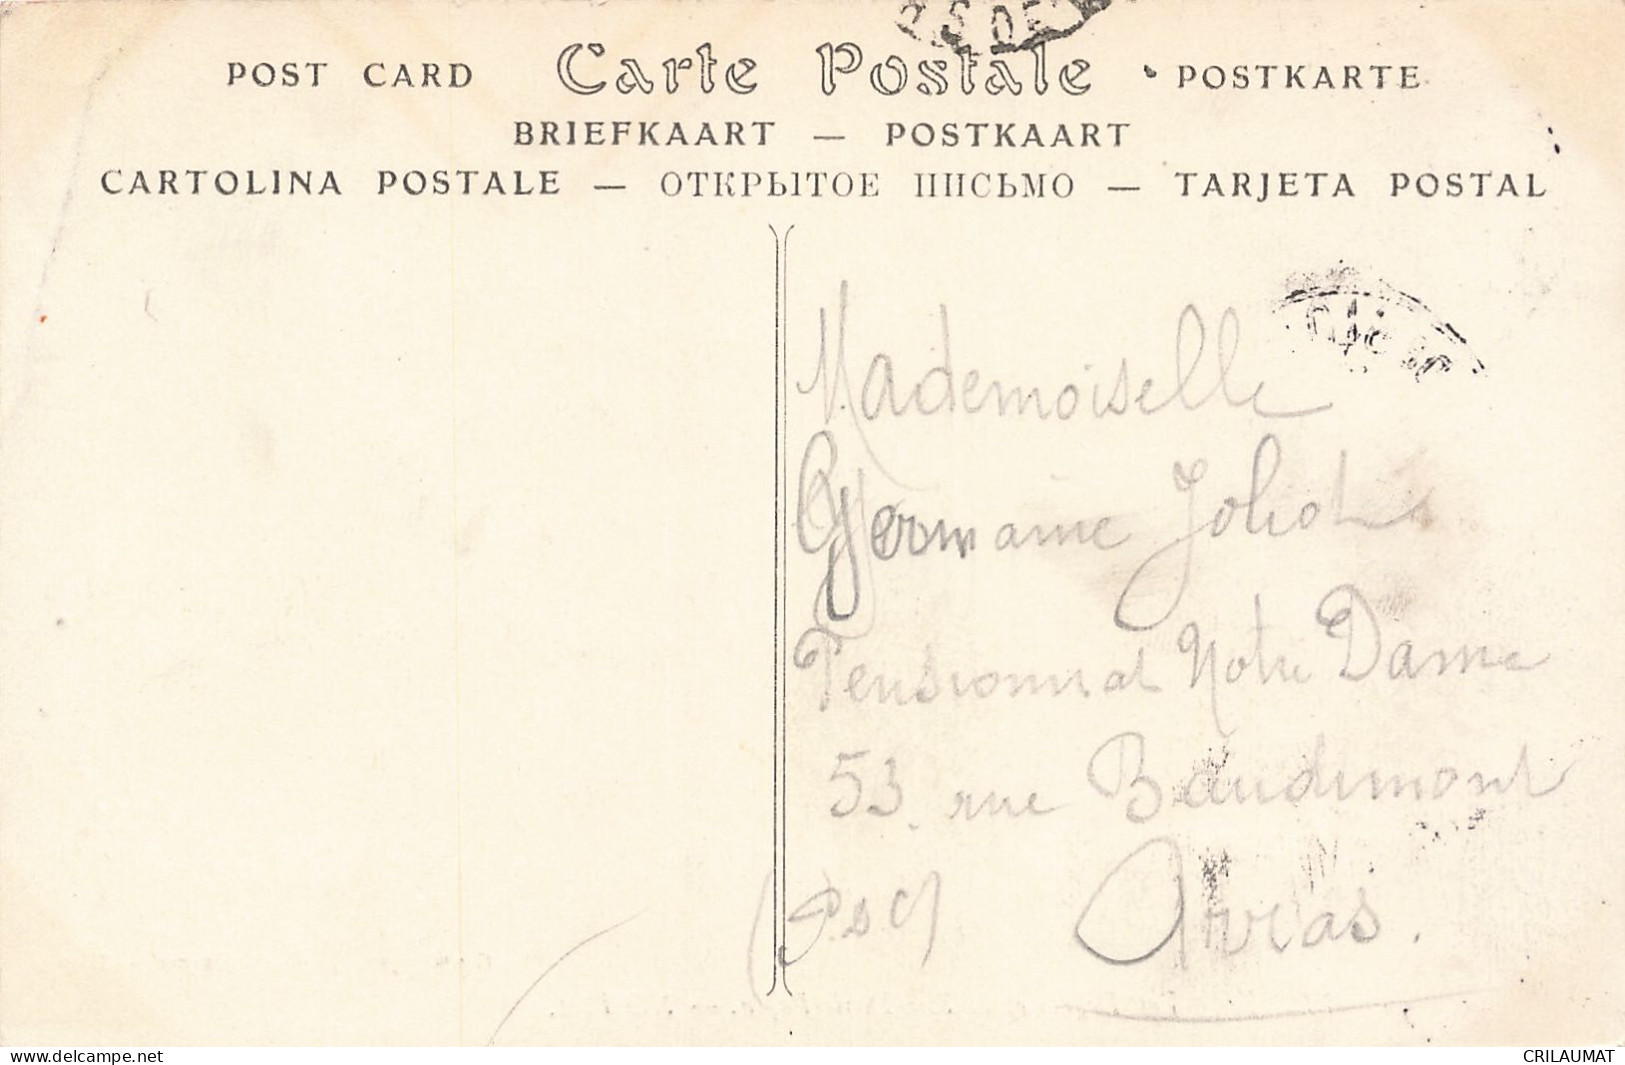 POST CARD Carte Postale POSTKARTE
BRIEFKAART — POSTKAART
CARTOLINA POSTALE — ОТКРЫТОЕ ПИСЬМО — TARJETA POSTAL
Mademoiselle
Germaine Joliot
Pensionnat Notre Dame
53. rue Baudimont
(P. d C) Arras.
www.delcampe.net
CRILAUMAT